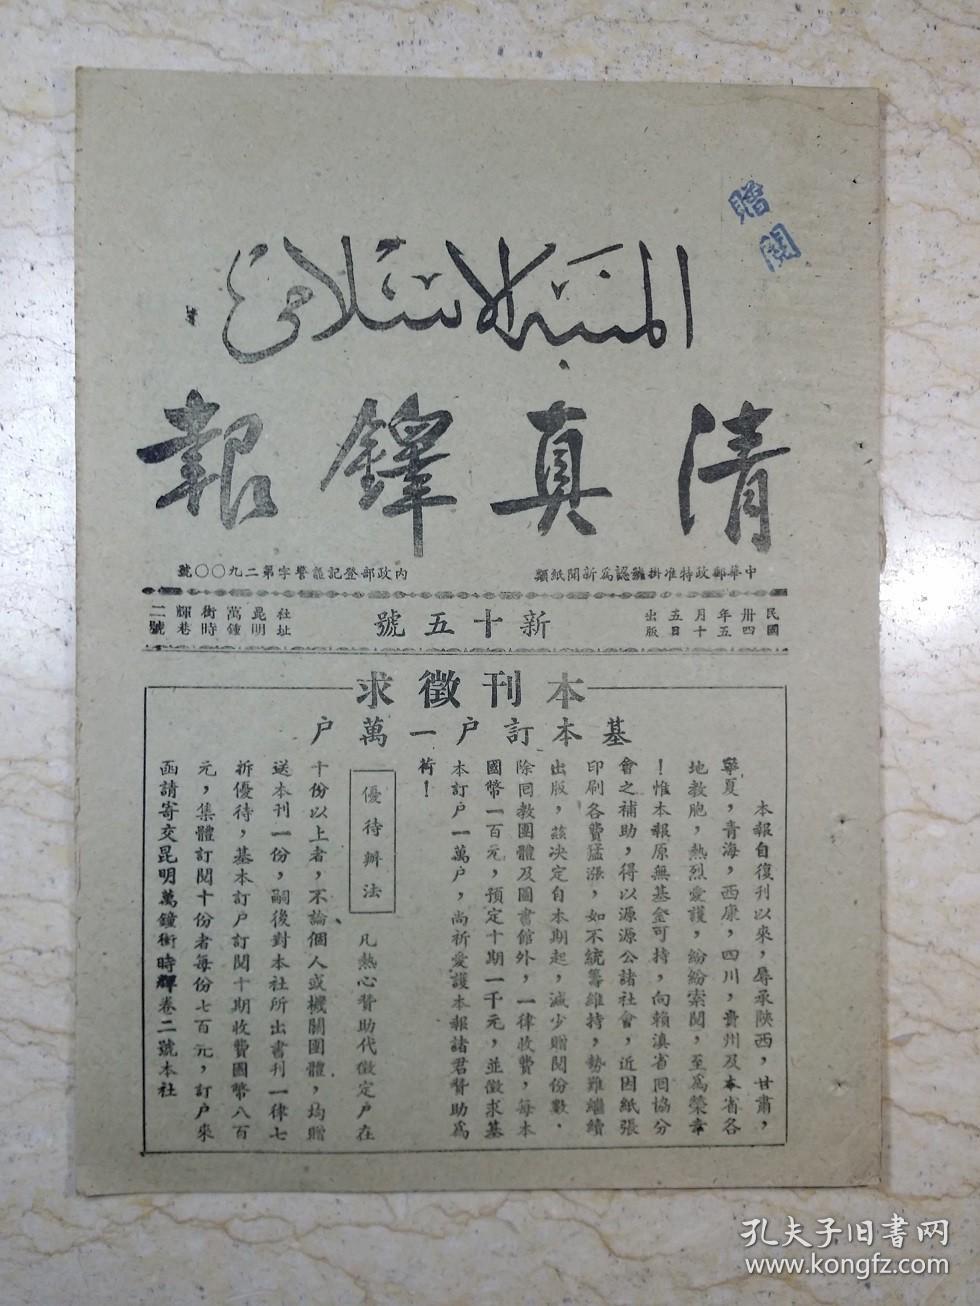 贈閱
المنبه الاسلامي
清真鐸報
中華郵政特准掛號認爲新聞紙類
內政部登記證警字第二九〇〇號
民國卅四年五月十五日出版
新十五號
社址昆明萬鐘街時輝巷二號
本刊徵求
基本訂户一萬户
本報自復刊以來，辱承陝西，甘肅，
寧夏，青海，西康，四川，貴州及本省各
地教胞，熱烈愛護，紛紛索閱，至爲榮幸
！惟本報原無基金可持，向賴滇省回協分
會之補助，得以源源公諸社會，近因紙張
印刷各費猛漲，如不統籌維持，勢難繼續
出版，茲决定自本期起，减少贈閱份數．
除回教團體及圖書館外，一律收費，每本
國幣一百元，預定十期一千元，並徵求基
本訂户一萬户，尚祈愛護本報諸君贊助爲
荷！
優待辦法
凡熱心贊助代徵定户在
十份以上者，不論個人或機關團體，均贈
送本刊一份，嗣後對本社所出書刊一律七
折優待，基本訂户訂閱十期收費國幣八百
元，集體訂閱十份者每份七百元，訂户來
函請寄交昆明萬鐘街時輝巷二號本社
孔夫子旧书网
www.kongfz.com